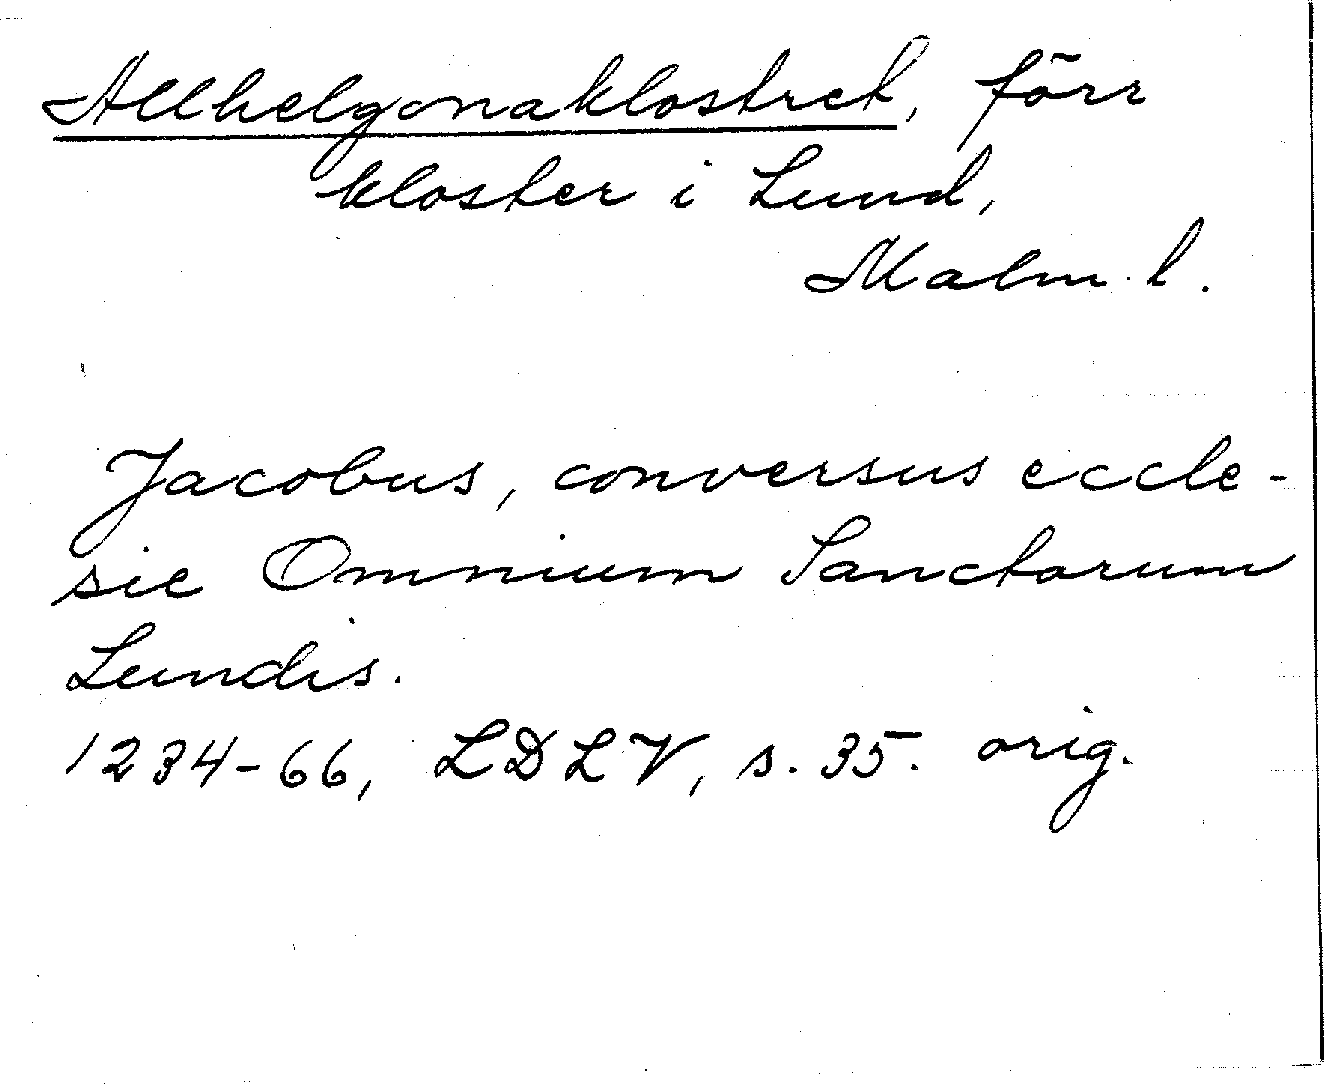 Allhelgonaklostret, förr
kloster i Lund,
Malm. l.
Jacobus, conversus eccle-
sie Omnium Sanctorum
Lundis.
1234-66, LDLV, s. 35. orig.